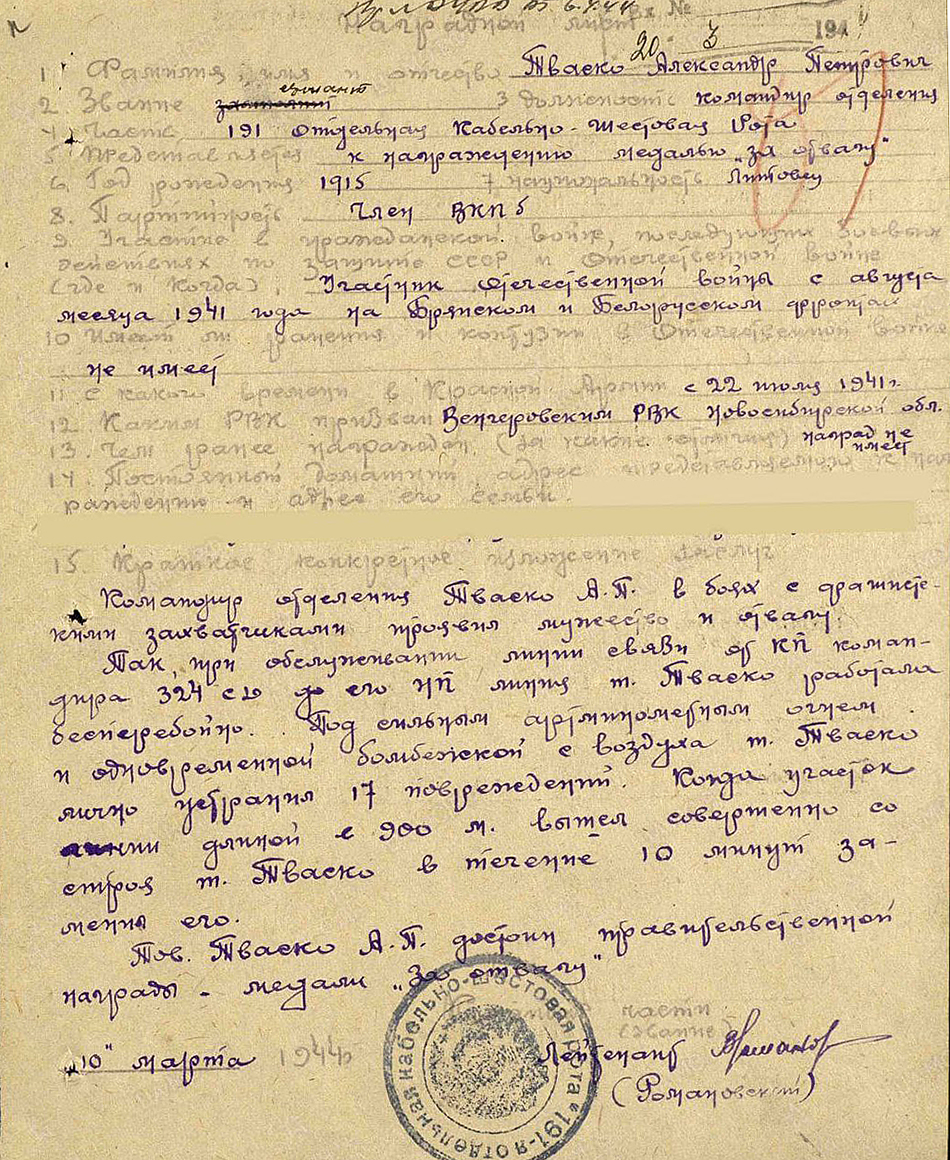 Наградной лист
Вх №
20. 3 194
1. Фамилия имя и отчество Тваско Александр Петрович
2 Звание сержант 3 должность командир отделения
4 Часть 191 Отдельная Кабельно-шестовая Рота
5 Представляется к награждению медалью „за отвагу"
6. Год рождения 1915 7 национальность Литовец
8. Партийность Член ВКПб
9. Участие в гражданской войне, последующих боевых
действиях по защите СССР и Отечественной войне
(где и когда). Участник Отечественной войны с августа
месяца 1941 года на Брянском и Белорусском фронтах
10 Имеет ли ранения и контузии в Отечественной войне
не имеет
11 С какого времени в Красной Армии с 22 июля 1941г.
12. Каким РВК призван Венгеровским РВК Новосибирской обл.
13. Чем ранее награжден (за какие отличия) наград не
имеет
14. Постоянный домашний адрес представляемого к наг
раждению и адрес его семьи.
15. Краткое конкретное изложение заслуг
Командир отделения Тваско А.П. в боях с фашистс-
кими захватчиками проявил мужество и отвагу.
Так при обслуживании линии связи от КП коман-
дира 324 сд до его НП линия т. Тваско работала
бесперебойно. Под сильным артминометным огнем
и одновременной бомбежкой с воздуха т. Тваско
лично устранил 17 повреждений. Когда участок
линии длиной в 900 м. вышел совершенно со
строя т. Тваско в течение 10 минут за-
менил его.
Тов. Тваско А.П. достоин правительственной
награды - медали „За отвагу"
части
(звание)
„10" марта 1944г
Лейтенант
(Романовский)
191-я отдельная кабельно-шестовая рота